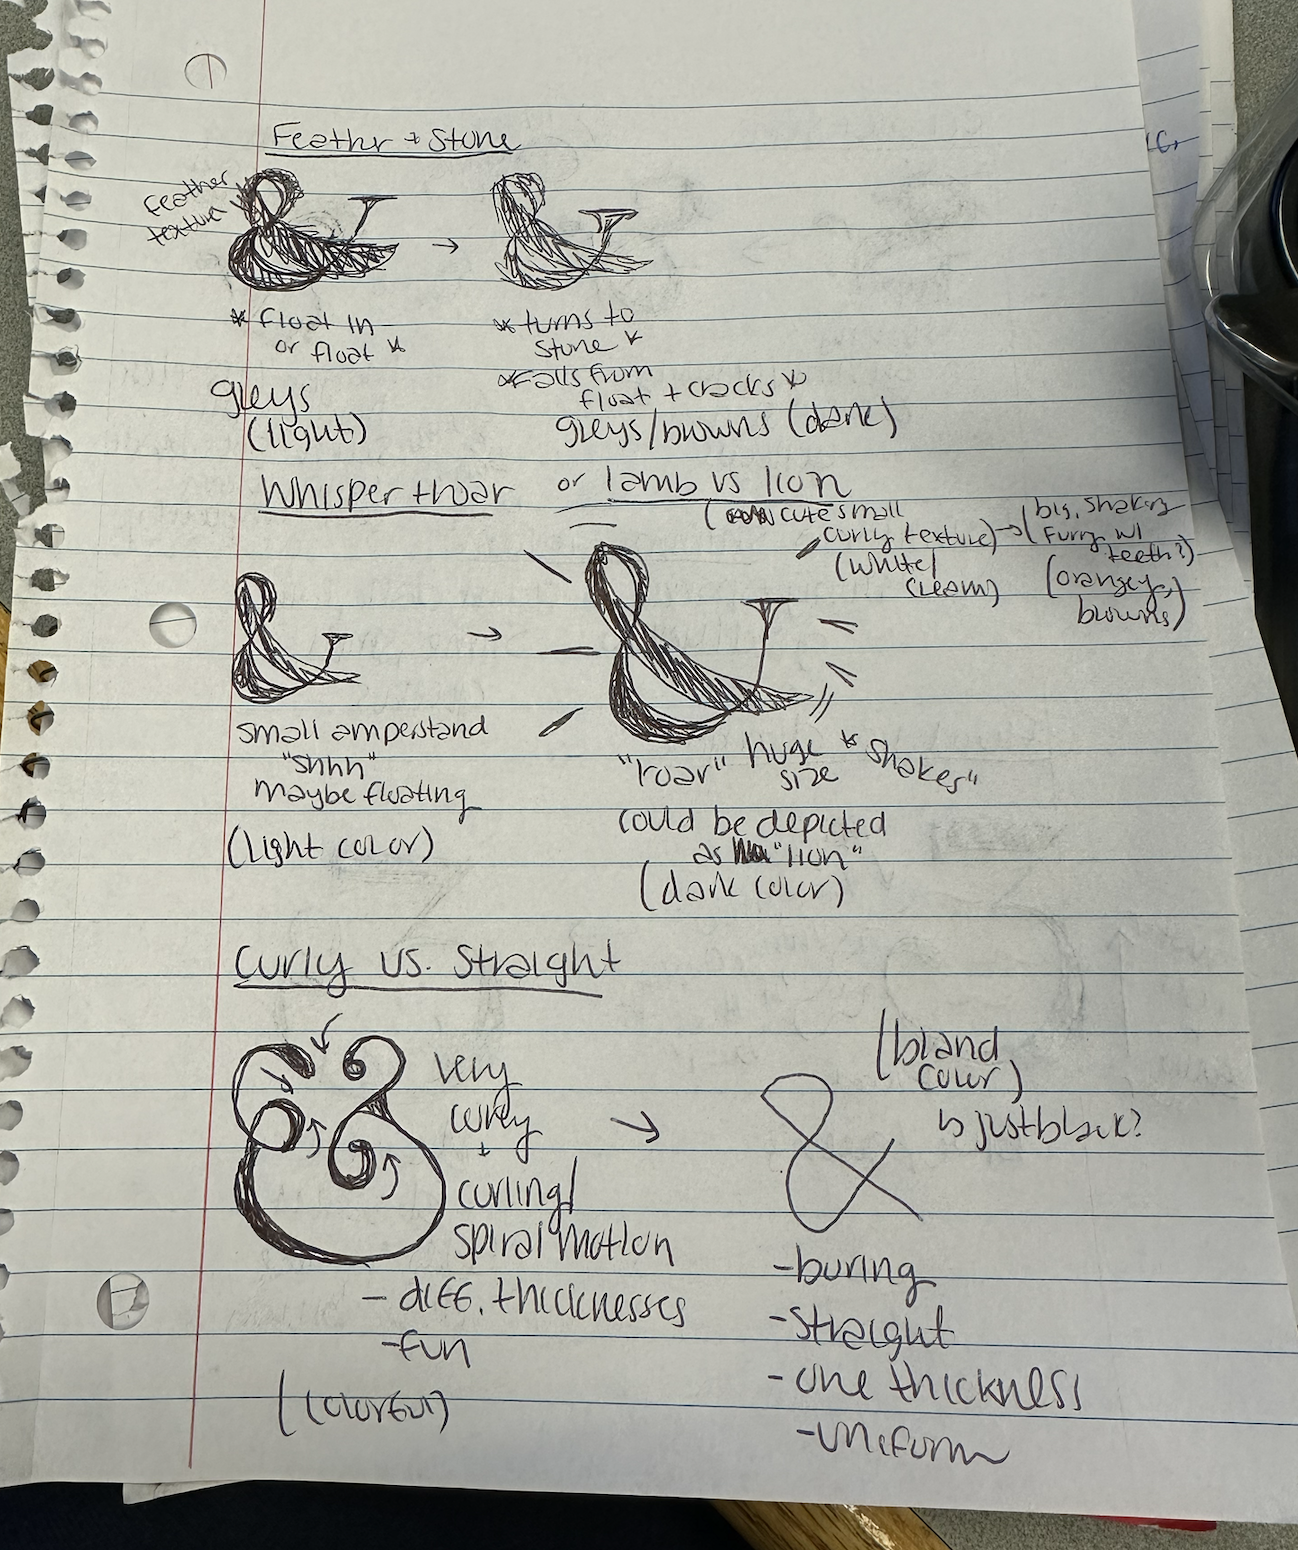 Feathr + Stone
Feather
texture
→
* float in
or float *
* turns to
Stone *
* Falls from
float + cracks *
greys
(light)
greys/browns (dark)
Whisper + hoar or lamb vs lion
(cute small
curly texture) → (big, shaking
furry w/
teeth?)
(white/
cream)
(orangeys,
browns)
→
small amperstand
"Shhh"
maybe floating
(light color)
"roar" huge * shakes"
size
could be depicted
as "lion"
(dark color)
Curly vs. Straight
very
curly
+
curling/
spiral motion
- diff. thicknesses
- fun
(colorful)
→
&
(bland
color)
↳ just black?
- boring
- straight
- one thickness
- uniform